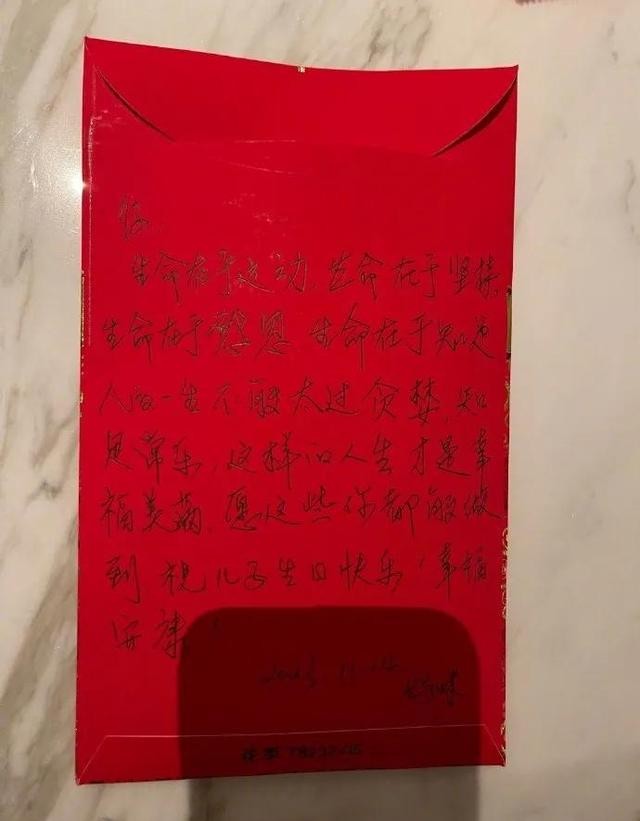 生命在于运动,生命在于坚持,
生命在于感恩 生命在于知足
人的一生不能太过贪婪,知
足常乐,这样的人生才是幸
福美满,愿这些你都能做
到 祝儿子生日快乐!幸福
安康!